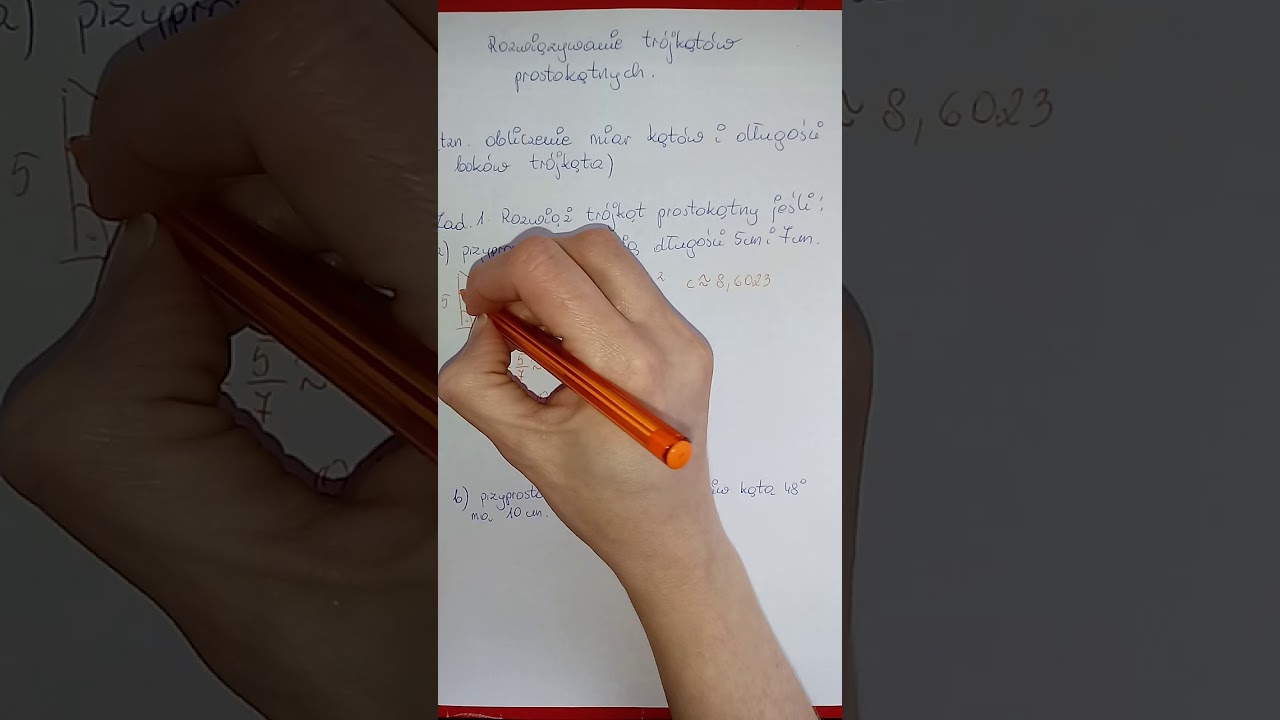 Rozwiązywanie trójkątów
prostokątnych.
(tzn. obliczenie miar kątów i długości
boków trójkąta)
Zad. 1. Rozwiąż trójkąt prostokątny jeśli:
a) długości 5cm i 7cm.
5 2 c ≈ 8,6023
5/7 ≈
b) kąta 48°
ma 10 cm.